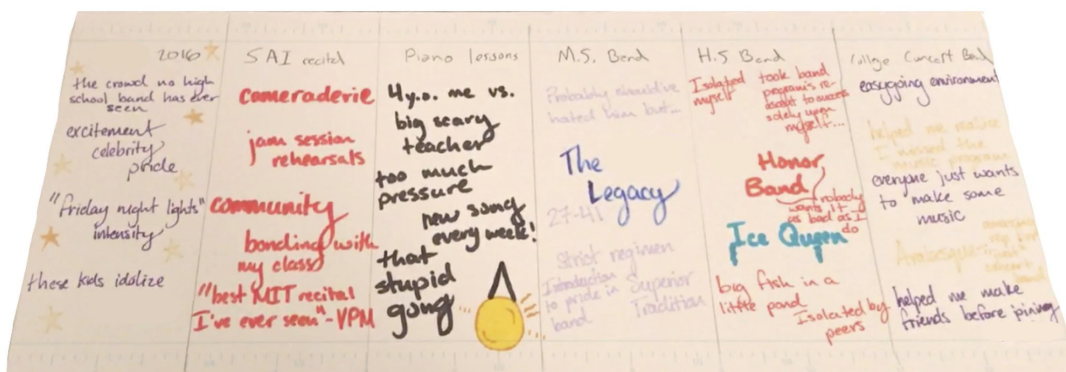 2016
the crowd no high
school band has ever
seen
excitement
celebrity
pride
"Friday night lights"
intensity
these kids idolize
SAI recital
cameraderie
jam session
rehearsals
community
bonding with
my class
"best MIT recital
I've ever seen" - VPM
Piano lessons
4 y.o. me vs.
big scary
teacher
too much
pressure
new song
every week!
that
stupid
gong
M.S. Band
Probably should've
hated him but...
The
Legacy
27-41
Strict regimen
Introduction
to pride in
band
Superior
Tradition
H.S Band
Isolated
myself
took band
program's re-
solely upon
myself...
Honor
Band
nobody
wants it
as bad as I
do
Ice Queen
big fish in a
little pond
Isolated by
peers
College Concert Band
easygoing environment
helped me realize
I missed the
music program
everyone just wants
to make some
music
Arabesque
helped me make
friends before joining